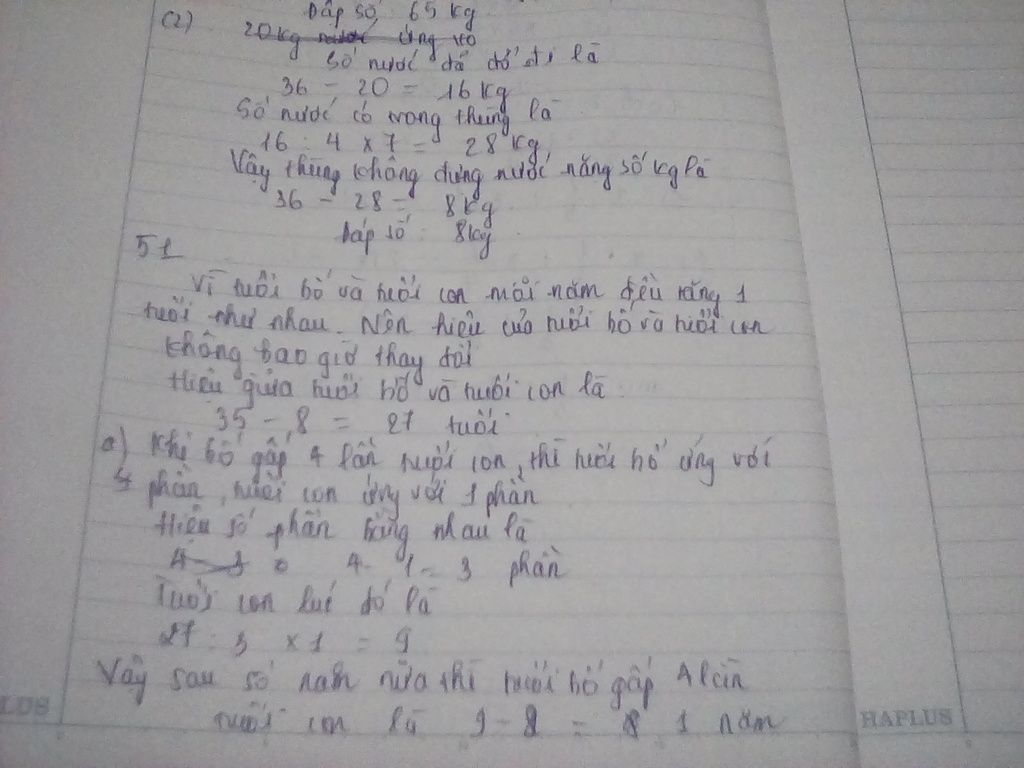 Đáp số: 65 kg
(2) 20kg nước ứng
Số nước đã đổ đi là
36 - 20 = 16 kg
Số nước có trong thùng là
16 : 4 x 7 = 28 kg
Vậy thùng không đựng nước nặng số kg là
36 - 28 = 8kg
Đáp số: 8kg
51
Vì tuổi bố và tuổi con mỗi năm đều tăng 1
tuổi như nhau. Nên hiệu của tuổi bố và tuổi con
không bao giờ thay đổi
Hiệu giữa tuổi bố và tuổi con là
35 - 8 = 27 tuổi
a) Khi bố gấp 4 lần tuổi con, thì tuổi bố ứng với
4 phần, tuổi con ứng với 1 phần
Hiệu số phần bằng nhau là
4 - 1 = 3 phần
Tuổi con lúc đó là
27 : 3 x 1 = 9
Vậy sau số năm nữa thì tuổi bố gấp 4 lần
tuổi con là 9 - 8 = 1 năm
LUS
HAPLUS